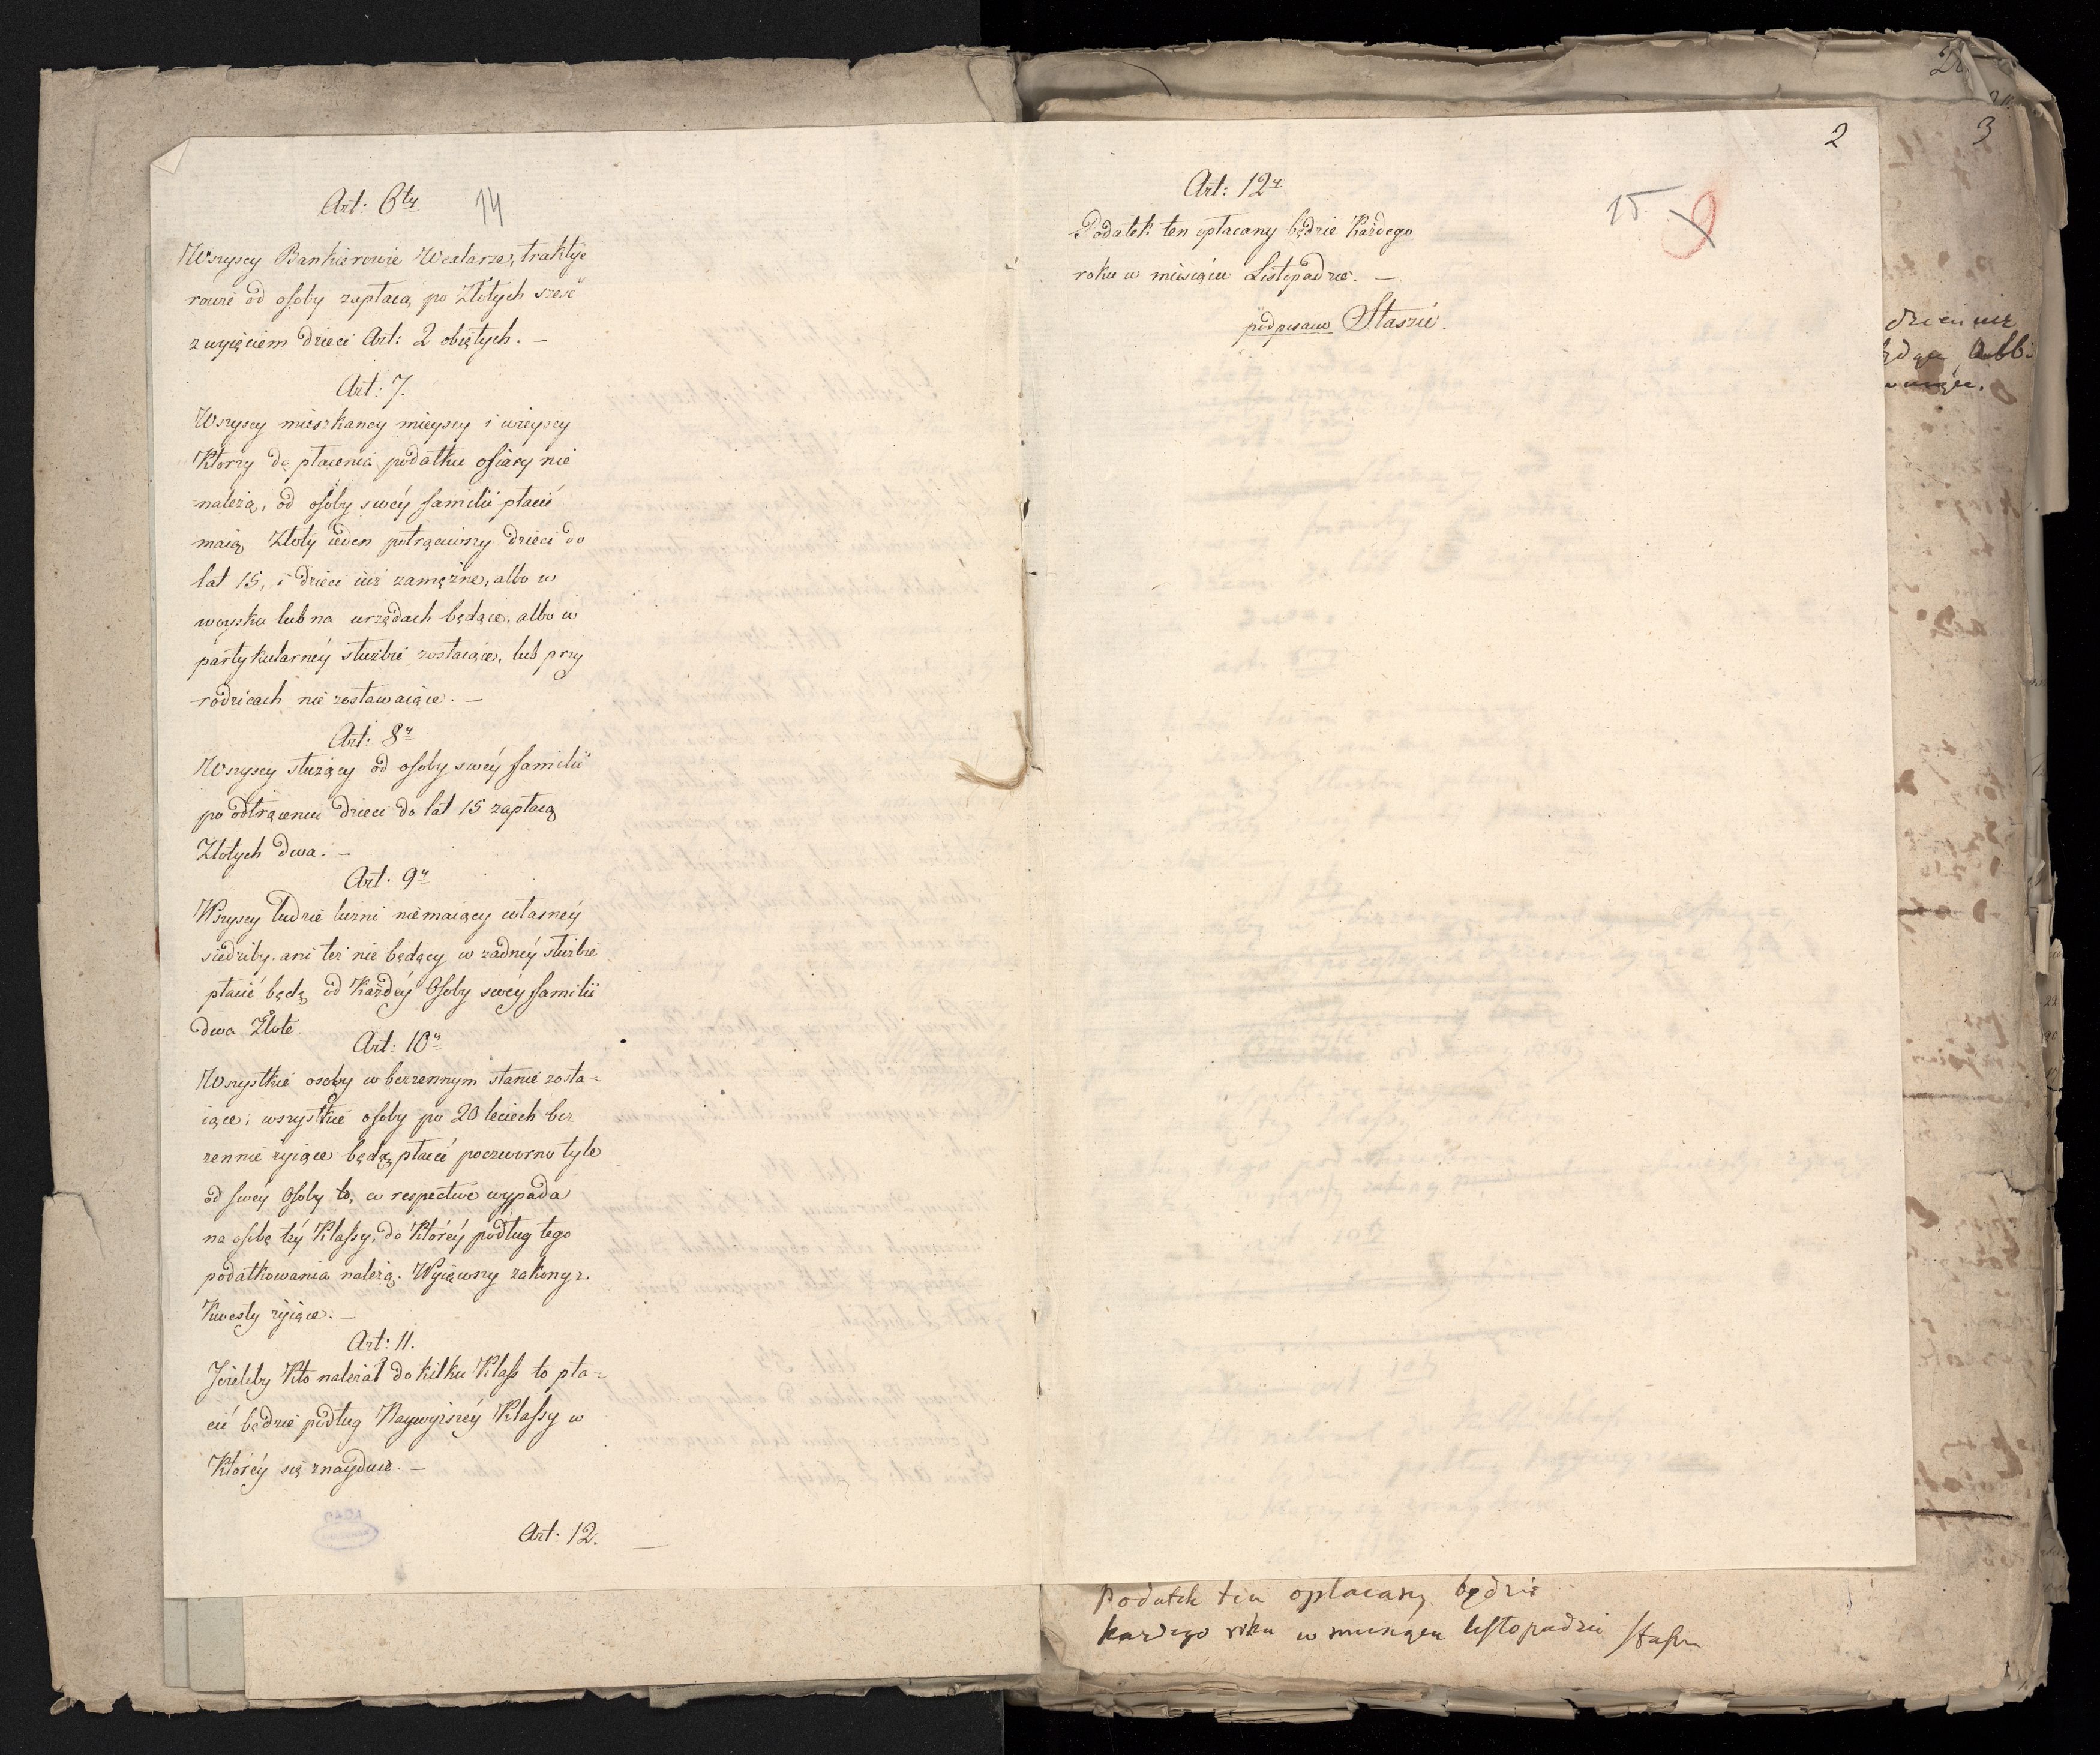 14
Art: 6ty
Wszyscy Bankierowie Wexlarze, traktye
rowie od osoby zapłacą po Złotych sześć
z wyięciem dzieci Art: 2 obiętych. —
Art: 7.
Wszyscy mieszkancy mieyscy i wieyscy
Ktorzy do płacenia podatku ofiary nie
należą, od osoby swéy familii płacić
maią Złoty ieden potrąciwszy dzieci do
lat 15, i dzieci iuż zamężne, albo w
woysku lub na urzędach będące, albo w
partykularnéy służbie zostaiące, lub przy
rodzicach nie zostawaiące. —
Art: 8y
Wszyscy służący od osoby swéy familii
po odtrąceniu dzieci do lat 15 zapłacą
Złotych dwa. —
Art: 9y
Wszyscy ludzie luźni niemaiący własnéy
siedziby, ani też nie będący w żadnéy służbie
płacić będą od Każdéy Osoby swéy familii
dwa Złote.
Art: 10y
Wszystkie osoby w bezżennym stanie zosta=
iące; wszystkie osoby po 20 leciech bez
żennie żyiące będą płacić poczworno tyle
od swéy Osoby to, co respective wypada
na osobę téy Klassy, do Któréy podług tego
podatkowania należą. Wyiąwszy zakony z
Kwesty żyiące. —
Art: 11.
Jeżeliby Kto należał do kilku Klass to pła=
cić będzie podług Naywyższéy Klassy w
Któréy się znayduie. —
Art: 12.
2
15
9
Art: 12y
Podatek ten opłacany będzie Każdego
roku w miesiącu Listopadzie. —
podpisano Staszic.
3
Podatek ten opłacany będzie
każdego roku w miesiącu listopadzie Staszic